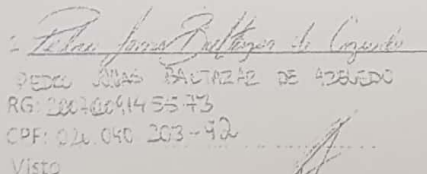 Pedro Jonas Baltazar de Azevedo
PEDRO JONAS BALTAZAR DE AZEVEDO
RG:
CPF: 026.040.203-92
Visto